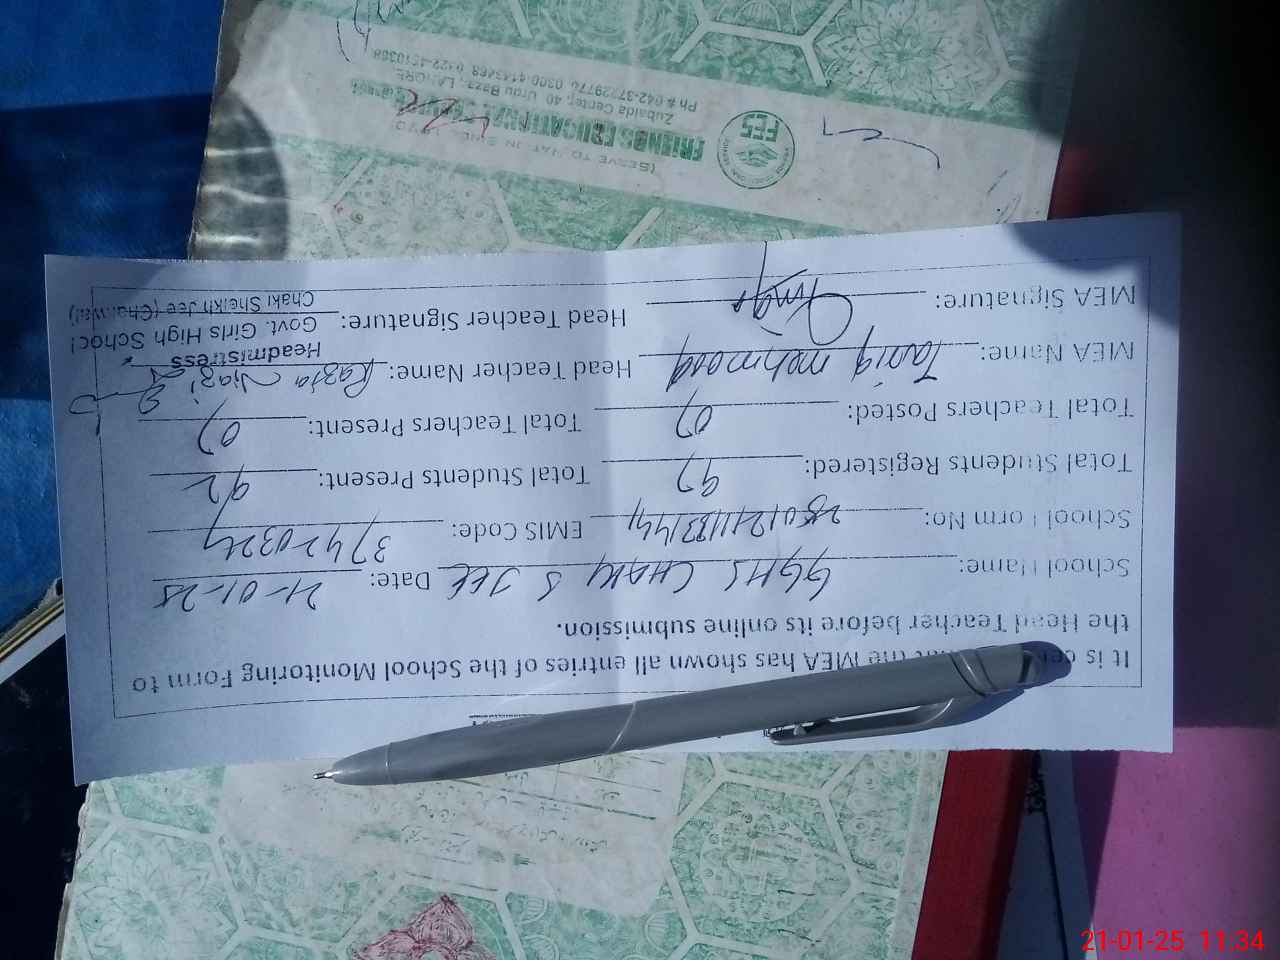 It is that the MEA has shown all entries of the School Monitoring Form to
the Head Teacher before its online submission.
School Name: GGHS CHAKI S JEE Date: 21-01-25
School Form No: EMIS Code: 37420324
Total Students Registered: 97 Total Students Present: 92
Total Teachers Posted: 07 Total Teachers Present: 07
MEA Name: Tariq mehmood Head Teacher Name: Razia Niazi
Headmistress
MEA Signature: Head Teacher Signature: Govt. Girls High School
Chaki Sheikh Jee (Chakwal)
(SERVE TO
FRIENDS EDUCATIONAL
Zubaida Center, 40 Urdu Bazar, LAHORE
Ph # 042-37229770, 0300-4143468, 0422-4510358
FES
21-01-25 11:34